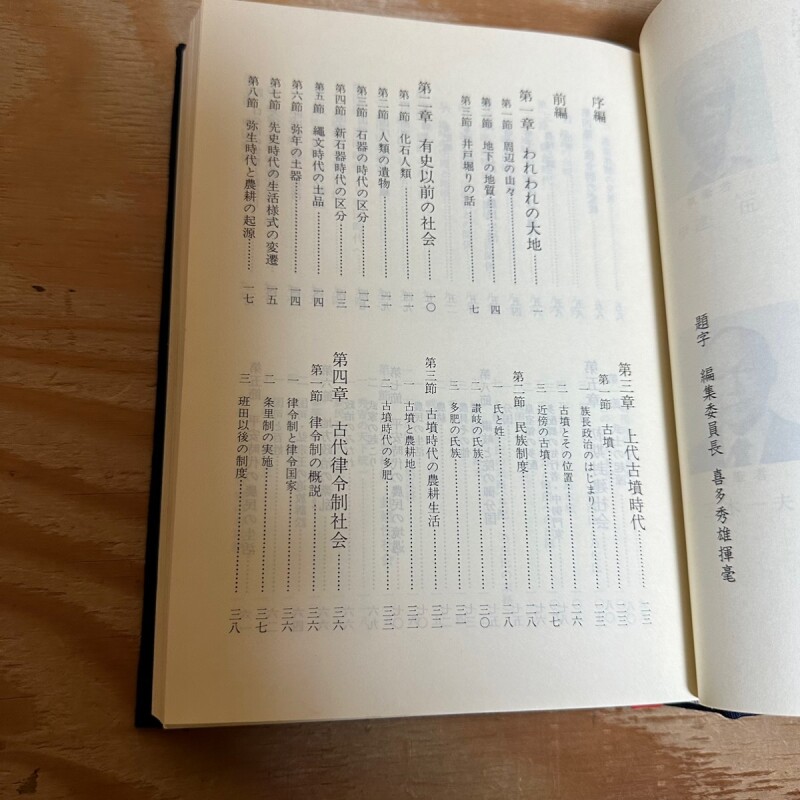 題字 編集委員長 喜多秀雄揮毫
序編
前編
第一章 われわれの大地……一
第一節 周辺の山々……
第二節 地下の地質……四
第三節 井戸堀りの話……七
第二章 有史以前の社会……一〇
第一節 化石人類……
第二節 人類の遺物……一一
第三節 石器の時代の区分……一二
第四節 新石器時代の区分……一三
第五節 縄文時代の土品……一四
第六節 弥年の土器……一四
第七節 先史時代の生活様式の変遷……一五
第八節 弥生時代と農耕の起源……一七
第三章 上代古墳時代……二三
第一節 古墳……二三
一 族長政治のはじまり……二三
二 古墳とその位置……二六
三 近傍の古墳……二七
第二節 民族制度……二八
一 氏と姓……二八
二 讃岐の氏族……三〇
三 多肥の氏族……三一
第三節 古墳時代の農耕生活……三二
一 古墳と農耕地……三二
二 古墳時代の多肥……三三
第四章 古代律令制社会……三六
第一節 律令制の概説……三六
一 律令制と律令国家……三六
二 条里制の実施……三七
三 班田以後の制度……三八